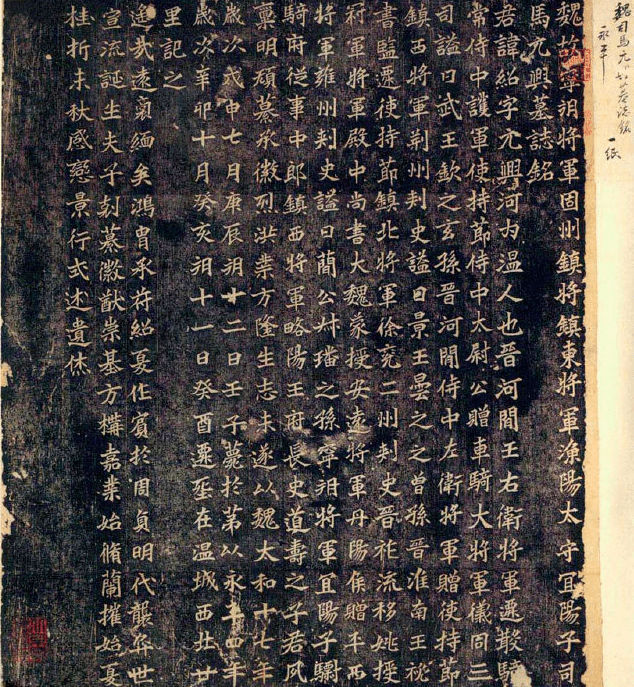 魏司馬元興墓誌銘
永平 一紙
魏故寧朔將軍固州鎮將鎮東將軍漁陽太守宜陽子司
馬元興墓誌銘
君諱紹字元興河內溫人也晉河間王右衛將軍遷散騎
常侍中護軍使持節侍中太尉公贈車騎大將軍儀同三
司謚曰武王欽之玄孫晉河間侍中左衛將軍贈使持節
鎮西將軍荊州刺史謚曰景王曇之之曾孫晉淮南王祕
書監遷使持節鎮北將軍徐兗二州刺史晉祚流移姚授
冠將軍殿中尚書大魏蒙授安遠將軍丹陽侯贈平西
將軍雍州刺史謚曰簡公叔璠之孫寧朔將軍宜陽子驃
騎府從事中郎鎮西將軍略陽王府長史道壽之子君夙
稟明碩纂承徽烈洪業方隆生志未遂以魏太和十七年
歲次戊申七月庚辰朔十二日壬子薨於第以永平四年
歲次辛卯十月癸亥朔十一日癸酉遷塟在溫城西北廿
里記之
遙哉遠裔緬矣鴻胄承符紹夏作賓於周貞明代襲弈世
宣流誕生夫子剋纂徽猷崇基方構嘉業始脩蘭摧始夏
桂折未秋感戀景行式述遺休